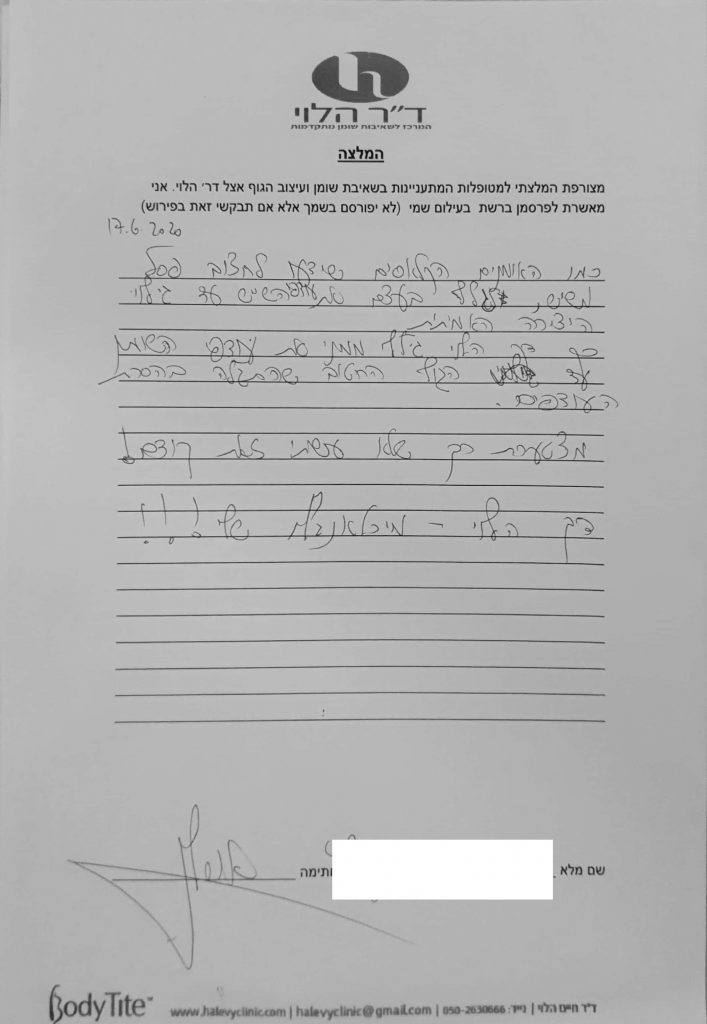 ד״ר הלוי
המרכז לשאיבות שומן מתקדמות
המלצה
מצורפת המלצתי למטופלות המתעניינות בשאיבת שומן ועיצוב הגוף אצל דר׳ הלוי. אני
מאשרת לפרסמן ברשת בעילום שמי (לא יפורסם בשמך אלא אם תבקשי זאת בפירוש)
17.6.2020
כמו האומנים הקלאסים שידעו לחצוב פסל
משיש, לגלף בעצם את עודפי השיש עד גילוי
היצירה האמיתית
כך דר הלוי גילף ממני את עודפי השומן
עד הגוף החטוב שהתגלה בהסרת
העודפים.
מצטערת רק שלא עשיתי זאת קודם!
דר הלוי - מיכלאנג'לו שלי!!!
שם מלא חתימה
BodyTite™ www.halevyclinic.com | halevyclinic@gmail.com | 050-2630666 :ד״ר חיים הלוי | נייד